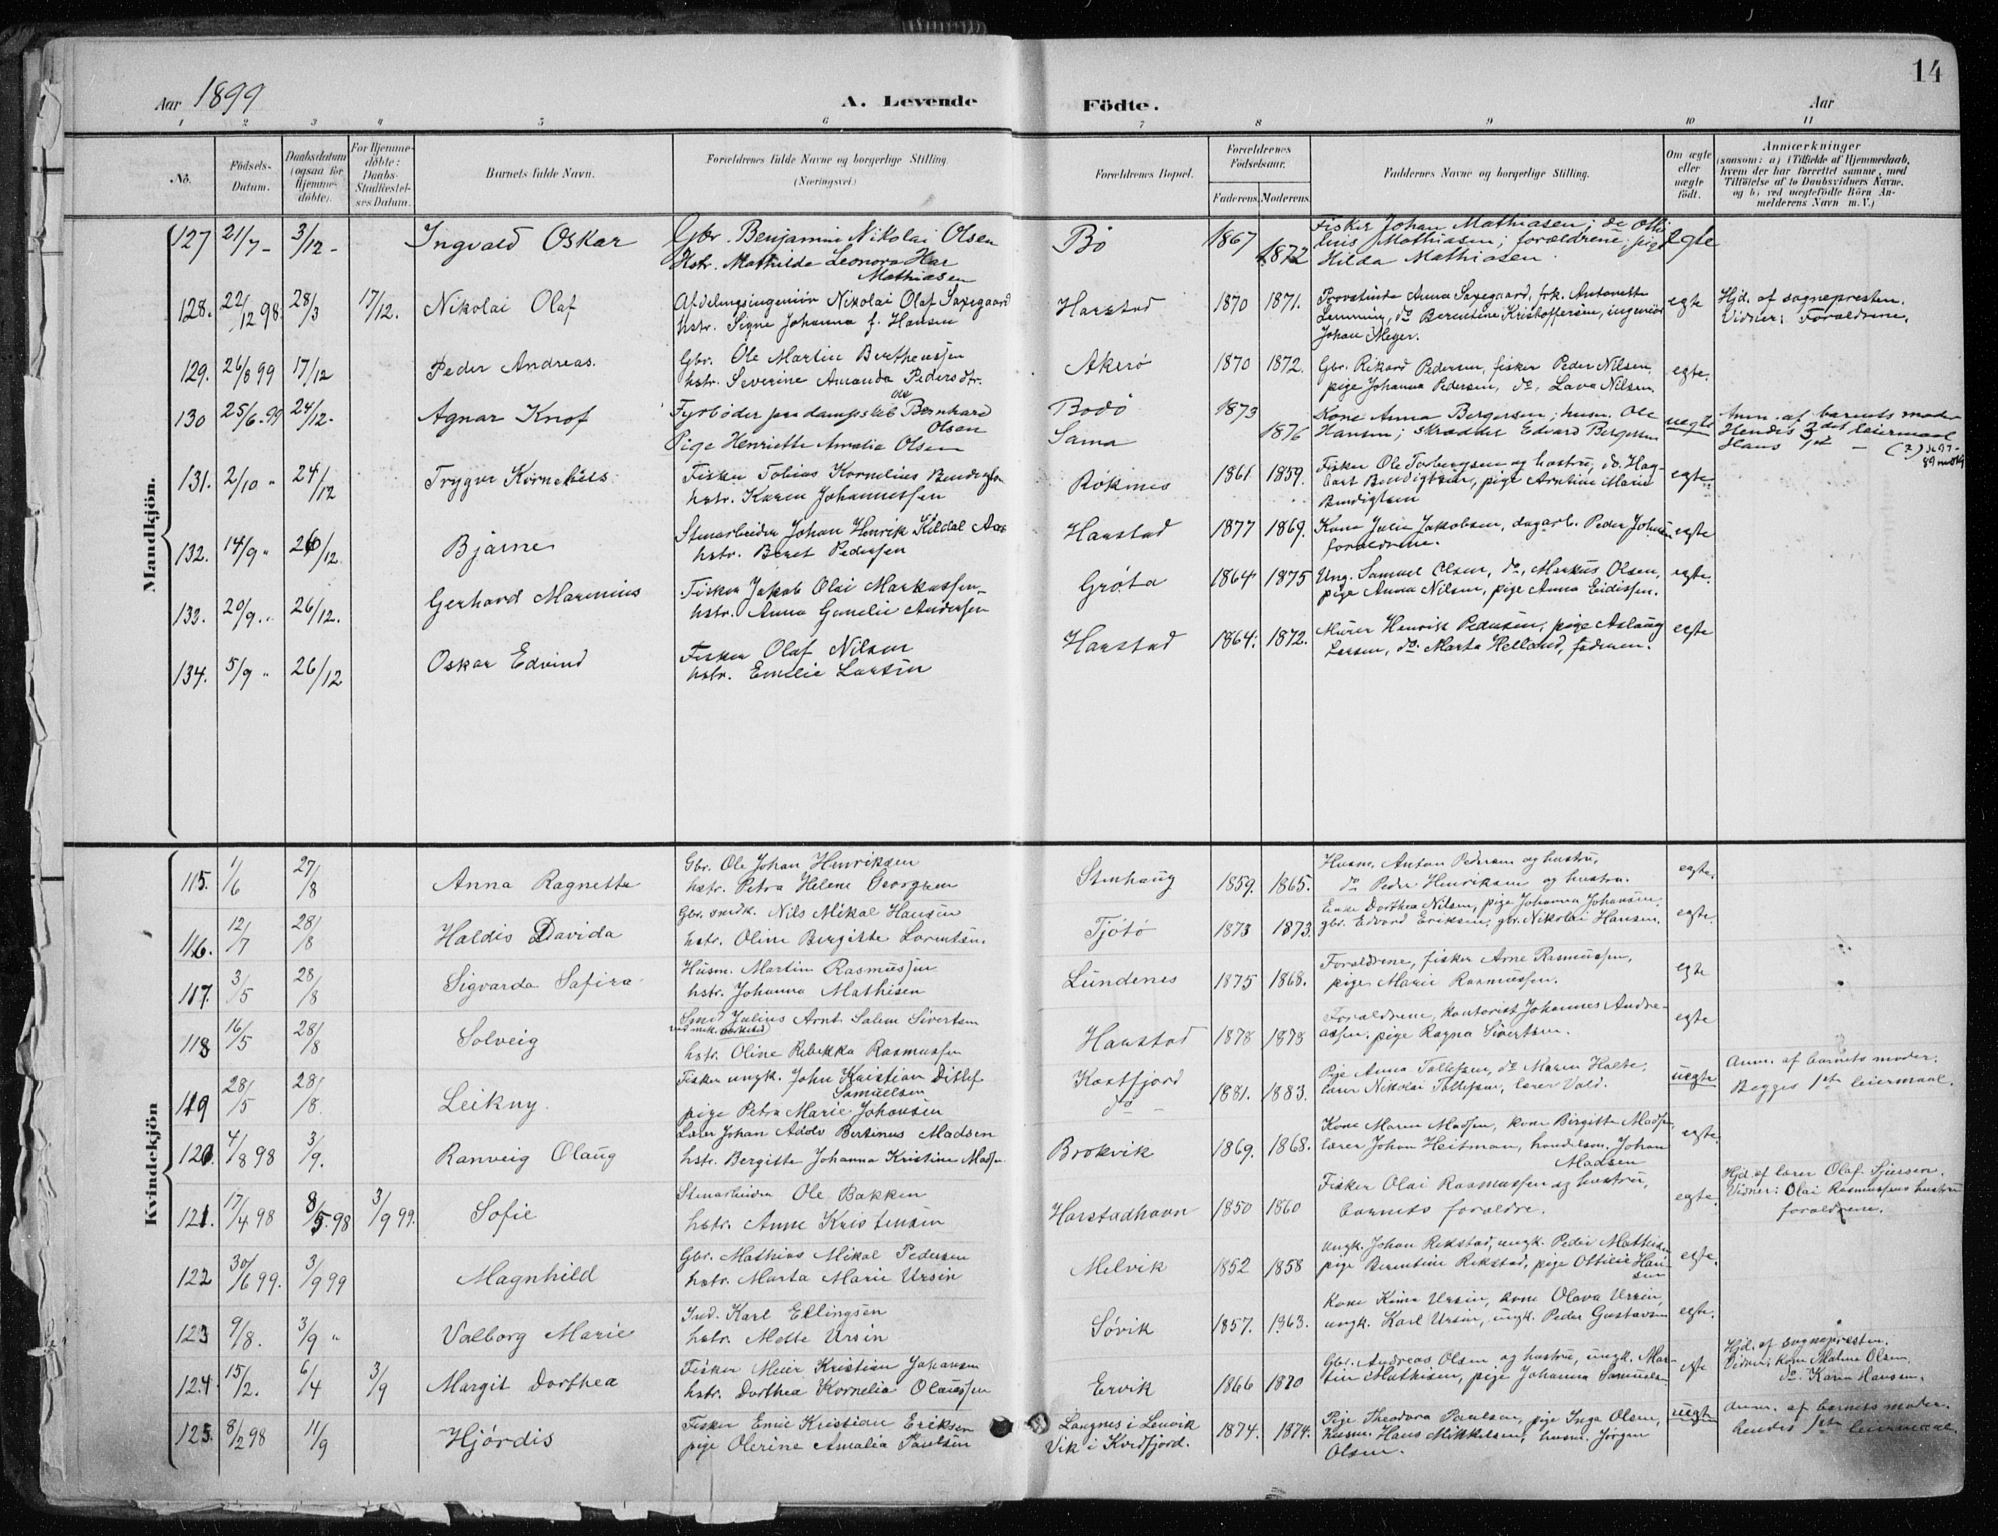 14
Aar 1899 A. Levende Födte. Aar
1 2 3 4 5 6 7 8 9 10 11
No. Födsels-Datum. Daabsdatum (ogsaa for Hjemme-döbte). For Hjemme-döbte: Daabs-Stadfæstel-ses Datum. Barnets fulde Navn. Forældrenes fulde Navne og borgerlige Stilling. (Næringsvei.) Forældrenes Bopæl. Forældrenes Födselsaar. Faderens. Moderens. Faddernes Navne og borgerlige Stilling. Om ægte eller uægte født. Anmærkninger (saasom: a) i Tilfælde af Hjemmedaab, hvem der har forrettet samme, med Tilföielse af to Daabsvidners Navne, og b) ved uægtefödte Börn Anmelderens Navn m. V.)
Mandkjön.
127 21/7 - 3/12 - Ingvald Oskar Gbr. Benjamin Nikolai Olsen Bø 1867 1872 Fisker Johan Mathiasen; do Otti
Hstr. Mathilde Leonora Har lius Mathiasen; forældrene; pige egte
Mathiasen Hilda Mathiasen.
128. 22/12 98. 28/3 17/12. Nikolai Olaf Afdelingsingeniör Nikolai Olaf Saxegaard Harstad 1870 1871. Provstinde Anna Saxegaard, frk. Antonette egte Hjd. af sognepresten.
hstr. Signe Johanna f. Hansen Lemming, do Berentine Kristoffersen, ingeniör Vidner: Forældrene.
Johan Meyer.
129. 26/8 99 17/12 Peder Andreas. Gbr. Ole Martin Bertheussen Akerø 1870 1872. Gbr. Rikard Pedersen, fisker Peder Nilsen, egte.
hstr. Severine Amanda Pedersdtr. pige Johanna Pedersen, do, Lava Nilsen.
130 25/6. 99 24/12 - Agnar Knof Fyrbøder paa dampskib Bernhard Bodø 1873 Kone Anna Bergersen; husm. Ole uegte Anm. af barnets moder
Olsen
Pige Henriette Amalie Olsen Sama 1876 Hansen; skrædder Edvard Bergersen Hendes 3det leiermaal
Hans 1st -
131. 2/10 " 24/12 Trygve Kornelius Fisker Tobias Kornelius Bendigtsen Røkenes 1861 1859. Fisker Ole Torbergsen og hustru, do. Hag- egte.
hstr. Karen Johannessen bart Bendigtsen, pige Arntine Marie
Bendigtsen
132. 14/9 " 26/12 Bjarne Stenarbeider Johan Henrik Kildal Harstad 1877 1869. Kone Julie Jakobsen, dagarb. Peder egte
hstr. Beret Pedersen forældrene.
133. 20/9. " 26/12. Gerhard Marinius Fisker Jakob Olai Markussen Grøta 1864 1875 Ung. Samuel Olsen, do, Markus Olsen, egte.
hstr. Anna Gunelie Andersen pige Anna Nilsen, pige Anna Eidissen.
134. 5/9 " 26/12 Oskar Edvind Fisker Olaf Nilsen Harstad 1864. 1872. Murer Henrik Pedersen, pige Aslaug egte
hstr. Emelie Larsen Larsen, do. Marta Helland, faderen.
Kvindekjön
115. 1/6 27/8 Anna Ragnetta Gbr. Ole Johan Henriksen Stenhaug 1859. 1865. Husm. Anton Pedersen og hustru, egte.
hstr. Petra Helene Georgsen do Peder Henriksen og hustru.
116. 12/7 28/8 Haldis Davida Gbr. smdk. Nils Mikal Hansen Tjøtø 1873 1873. Enke Dorthea Nilsen, pige Johanna Johansen, egte.
hstr. Oline Bergitte Lorentsen. gbr. Edvard Eriksen, gbr. Nikolai Hansen.
117. 3/5 28/8 Sigvarda Safira Husm. Martin Rasmussen Lundenes 1875 1868. Forældrene, fisker Arne Rasmussen, egte
hstr. Johanna Mathisen pige Marie Rasmussen.
118 16/5 28/8 Solveig Smed Julius Arnt Salem Sivertsen Harstad 1878 1878 Forældrene, kontorist Johannes Andre- egte
hstr. Oline Rebekka Rasmussen assen. pige Ragna Sivertsen.
119 28/5 28/8. Leikny. Fisker ungk. John Kristian Ditlef Kastfjord 1881. 1883. Pige Anna Tollefsen, do Maren Holte, uegte Anm. af barnets moder.
Samuelsen
pige Petra Marie Johansen do - lærer Nikolai Tollefsen, lærer Vold. Begges 1ste leiermaal.
120. 4/8 98 3/9. Ranveig Olaug Lærer Johan Adolv Bertinus Madsen Brokvik 1869. 1868. Kone Maren Madsen, kone Birgitte Madsen, egte.
hstr. Bergitte Johanna Kristine Madsen lærer Johan Heitman, handelsm. Johan
Madsen
121. 17/4 98 8/5. 98 3/9 99. Sofie Stenarbeider Ole Bakken Harstadhavn 1850 1860 Fisker Olai Rasmussen og hustru, egte. Hjd. af lærer Olaf Sjursen.
hstr. Anne Kristensen barnets forældre. Vidner: Olai Rasmussens hustru
forældrene.
122 30/6 99. 3/9 99 Magnhild Gbr. Mathias Mikal Pedersen Melvik 1852 1858 ungk. Johan Rekstad, ungk. Peder Mathisen egte.
hstr. Marta Marie Ursin pige Berentine Rekstad, pige Ottilie Han
sen
123 9/8. 3/9 " Valborg Marie Ind. Karl Ellingsen Søvik 1857. 1863. Kone Kima Ursin, kone Olava Ursin, egte.
hstr. Mette Ursin ungk. Karl Ursin, ungk. Peder Gustavsen
124. 15/2. 6/4 3/9 Margit Dorthea Fisker Meier Kristian Johansen Ervik 1866 1870 Gbr. Andreas Olsen og hustru, ungk. Mar- egte Hjd. af sognepresten.
hstr. Dorthea Kornelia Olaussen tin Mathisen, pige Johanna Samuels. Vidner: kone Maline Olsen.
do. Karen Hansen.
125. 8/2 98 11/9 Hjørdis Fisker Emil Kristian Eriksen Langnes i Lenvik 1874. 1874. Pige Theodora Paulsen, pige Inga Olsen, uegte Anm. af barnets moder.
pige Olerine Amalia Paulsen Vik i Kvæfjord. husm. Hans Mikkelsen, husm. Jørgen hendes 1ste leiermaal.
Olsen.